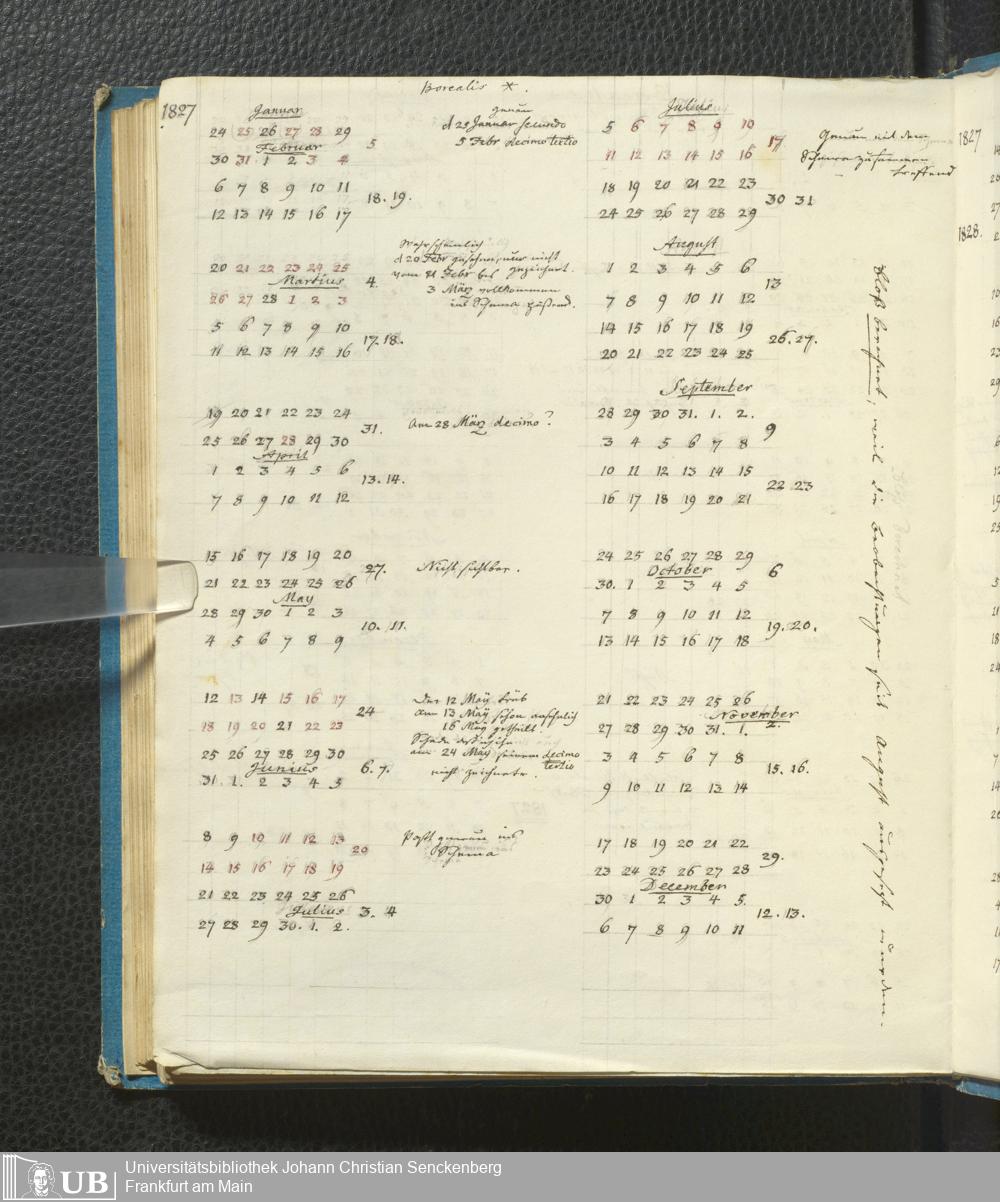 Borealis *.
1827
Januar
24 25 26 27 28 29
5
Februar
30 31. 1 2 3 4
6 7 8 9 10 11
18. 19.
12 13 14 15 16 17
genau
d 29 Januar secundo
5 Febr decimo tertio
20 21 22 23 24 25
4.
Martius
26 27 28 1 2 3
5 6 7 8 9 10
17. 18.
11 12 13 14 15 16
Wahrscheinlich
d 20 Febr gesehen, nur nicht
gezeichnet.
vom 21 Febr bis
3 März vollkommen
ins Schema passend.
19 20 21 22 23 24
31.
25 26 27 28 29 30
April
1 2 3 4 5 6
13. 14.
7 8 9 10 11 12
Am 28 März decimo?
15 16 17 18 19 20
27.
21 22 23 24 25 26
May
28 29 30 1 2 3
10. 11.
4 5 6 7 8 9
Nicht sichtbar.
12 13 14 15 16 17
24
18 19 20 21 22 23
25 26 27 28 29 30
6. 7.
Junius
31. 1. 2 3 4 5
Den 12 Maÿ trüb
am 13 Maÿ schon ansehnlich
16 Maÿ getheilt.
Schade daß ich ihn
am 24 Maÿ seinem decimo
tertio
nicht zeichnete.
8 9 10 11 12 13
20
14 15 16 17 18 19
21 22 23 24 25 26
3. 4
Julius
27 28 29 30. 1. 2.
Paßt genau ins
Schema
Julius
5 6 7 8 9 10
17.
11 12 13 14 15 16
18 19 20 21 22 23
30 31
24 25 26 27 28 29
Genau mit dem
Schema zusammen
treffend
August
1 2 3 4 5 6
13
7 8 9 10 11 12
14 15 16 17 18 19
26. 27.
20 21 22 23 24 25
September
28 29 30 31. 1. 2.
9
3 4 5 6 7 8
10 11 12 13 14 15
22 23
16 17 18 19 20 21
24 25 26 27 28 29
6
October
30. 1 2 3 4 5
7 8 9 10 11 12
19. 20.
13 14 15 16 17 18
21 22 23 24 25 26
November
27 28 29 30 31. 1.
2.
3 4 5 6 7 8
15. 16.
9 10 11 12 13 14
17 18 19 20 21 22
29.
23 24 25 26 27 28
December
30 1 2 3 4 5
12. 13.
6 7 8 9 10 11
Bloß berechnet, weil die Beobachtungen seit August ausgesetzt wurden.
1827
1828.
UB
Universitätsbibliothek Johann Christian Senckenberg
Frankfurt am Main